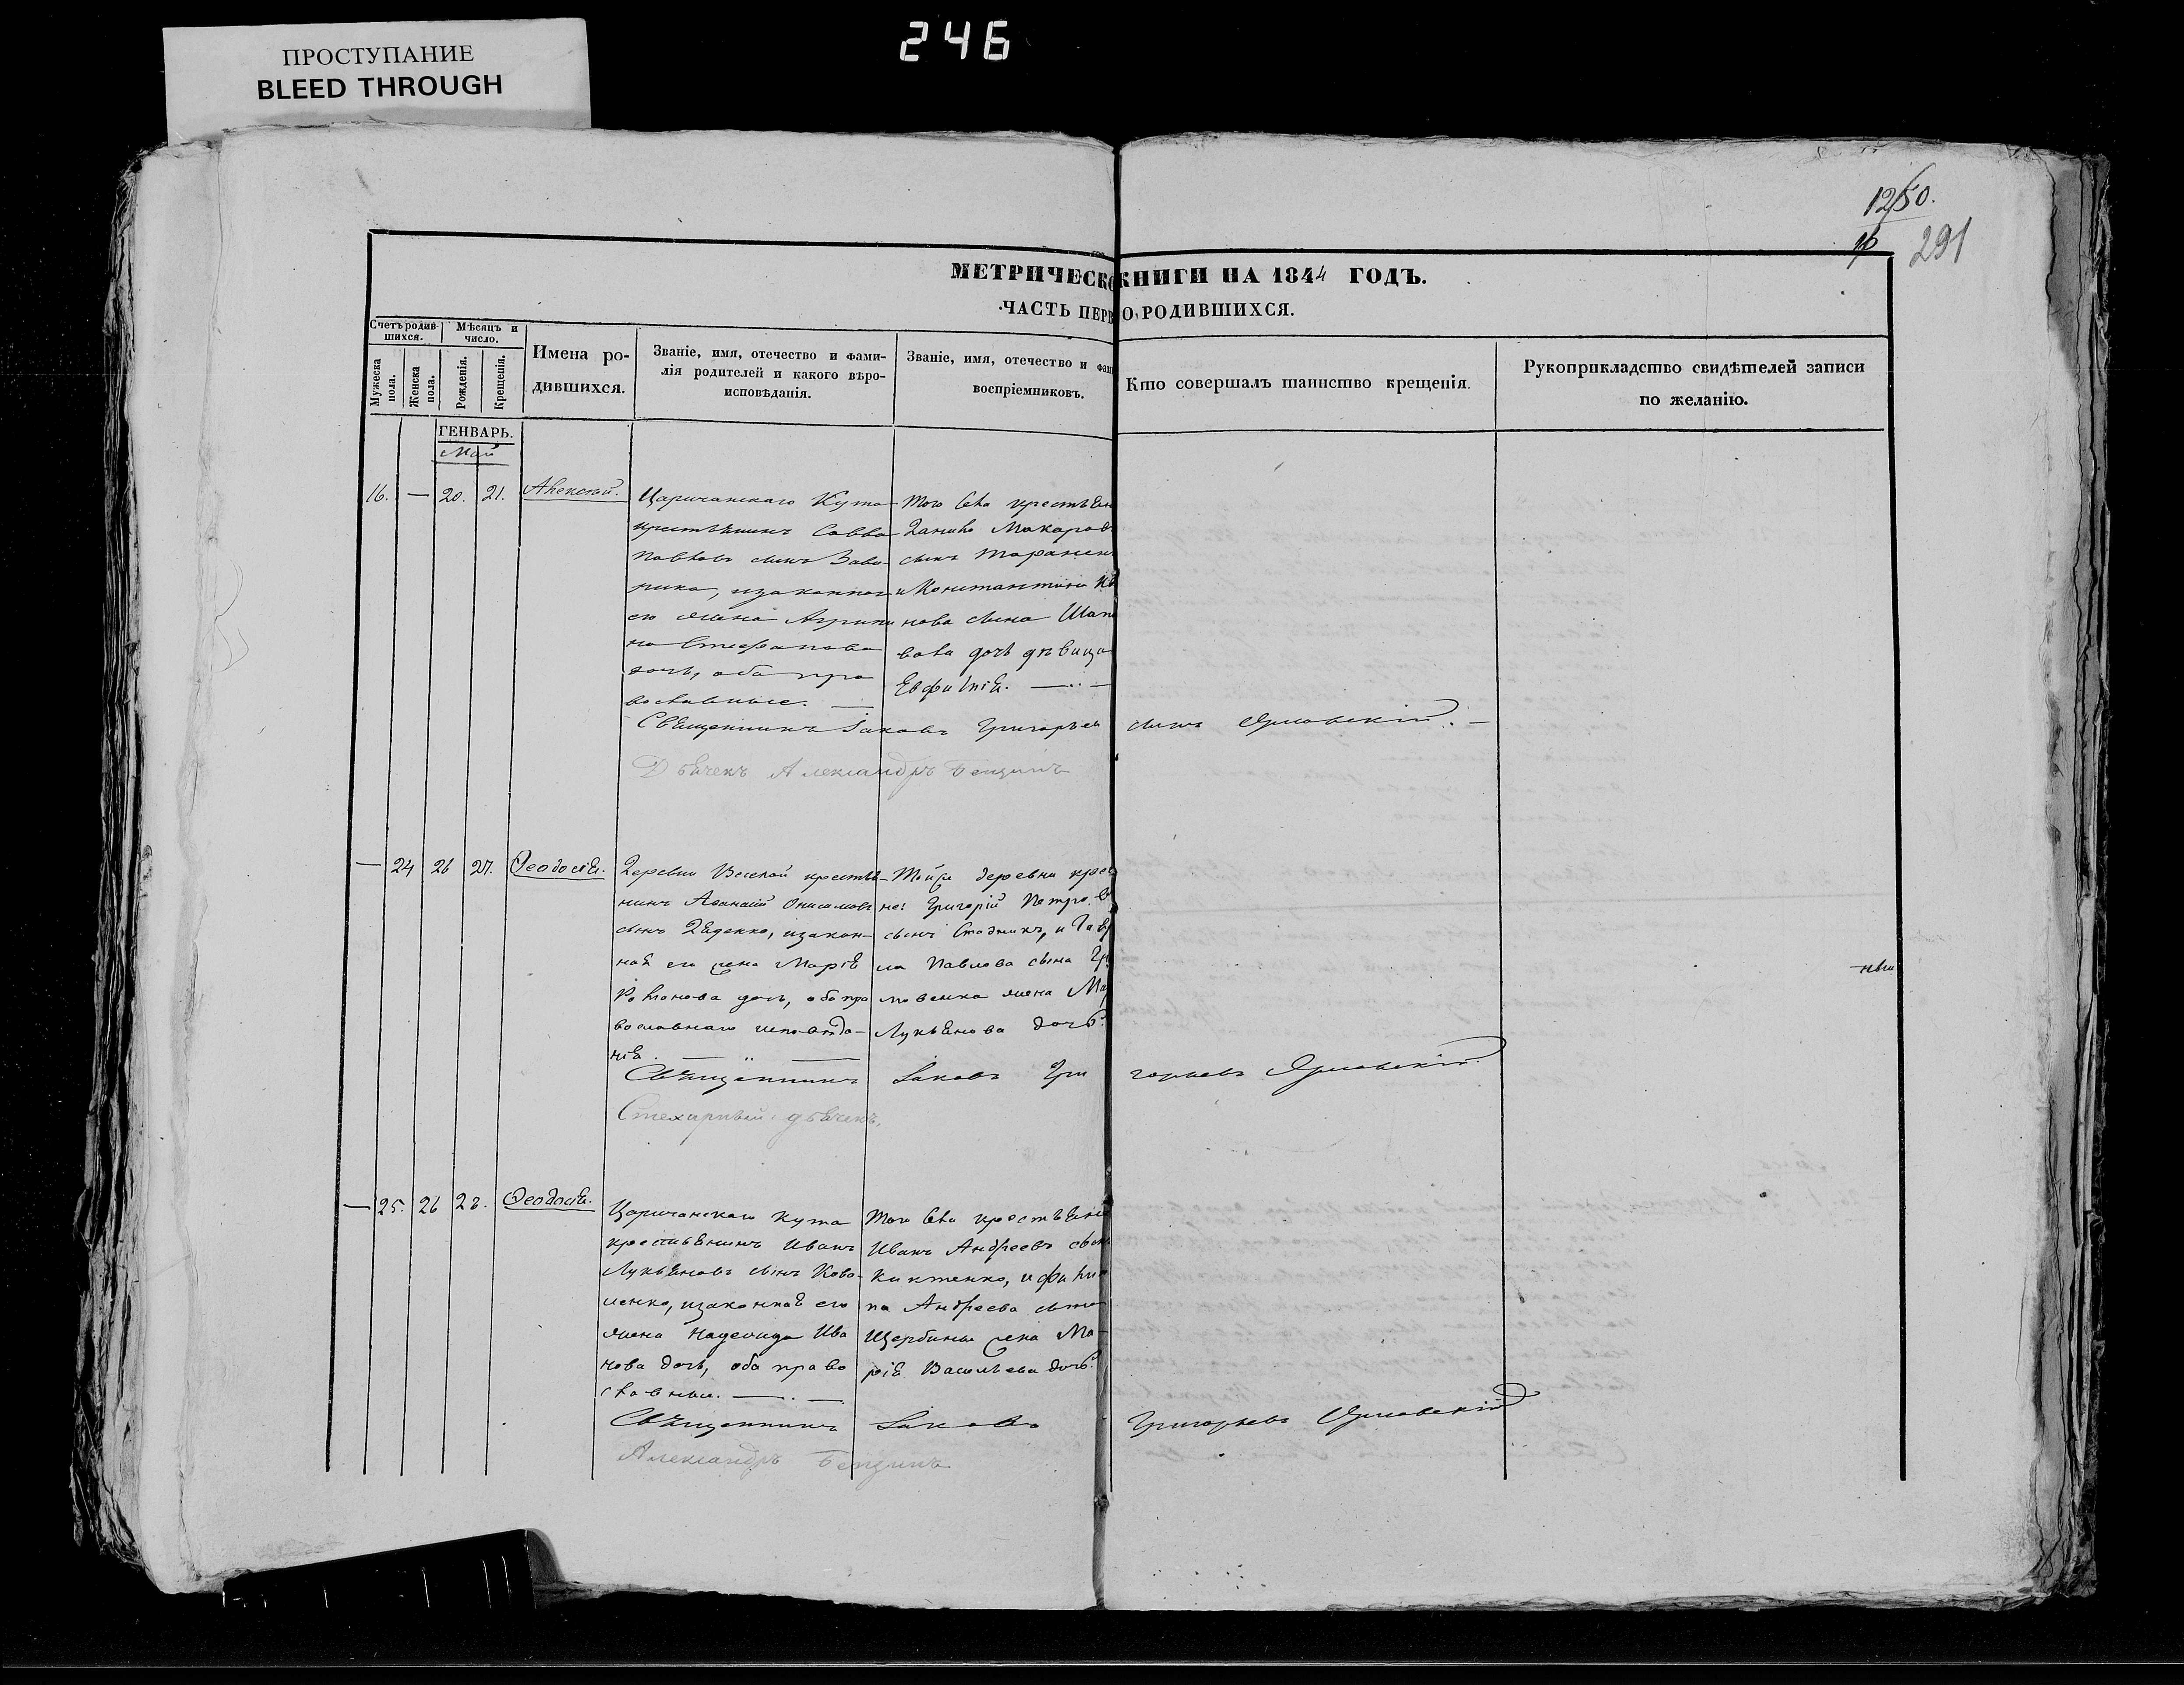 246
ПРОСТУПАНИЕ
BLEED THROUGH
1250.
291
МЕТРИЧЕСКО КНИГИ НА 1844 ГОДЪ.
ЧАСТЬ ПЕРВ О РОДИВШИХСЯ.
Счетъ родив-
шихся.
Мѣсяцъ и
число.
Мужеска
пола.
Женска
пола.
Рожденія.
Крещенія.
Имена ро-
дившихся.
Званіе, имя, отечество и фами-
лія родителей и какого вѣро-
исповѣданія.
Званіе, имя, отечество и фам
воспріемниковъ.
Кто совершалъ таинство крещенія.
Рукоприкладство свидѣтелей записи
по желанію.
ГЕНВАРЬ.
Май
16. — 20. 21. Алексѣй.
Царичанскаго Кута
крестьянинъ Савва
Павловъ сынъ
его жена
Стефанова
дочь, оба пра
вославные. —
Того села крестьян
Данило Макаров
сынъ Таранен
и Константина
нова сына Шап
вала дочь дѣвица
Евфимія. —
Священникъ Іаковъ Григорьев сынъ Ярновскій. —
Дьячекъ Александръ Бенцинъ
— 24 26 27. Феодосія.
Деревни Веселой крестья-
нинъ Афанасій Онисимовъ
сынъ Дяденко, и закон-
ная его жена Марія
дочь, оба пра
вославнаго исповѣда-
нія. —
Той же деревни крес
не: Григорій Петро в
сынъ Стадникъ, и Гав
ла Павлова сына
жена Мар
Лукьянова дочь.
ные
Священникъ Іаковъ Григорьевъ Ярновскій.
Стихарный дьячекъ,
— 25. 26 28. Феодосія.
Царичанскаго кута
крестьянинъ Иванъ
Лукьяновъ сынъ Кова-
ленко, и законная его
жена Надежда Ива
нова дочь, оба право
славные. —
Того села крестьяне
Иванъ Андреевъ сын
Киктенко, и Фили
па Андреева сына
Щербины жена Ма-
рія Васильева дочь.
Священникъ Іаковъ Григорьевъ Ярновскій
Александръ Бенцинъ